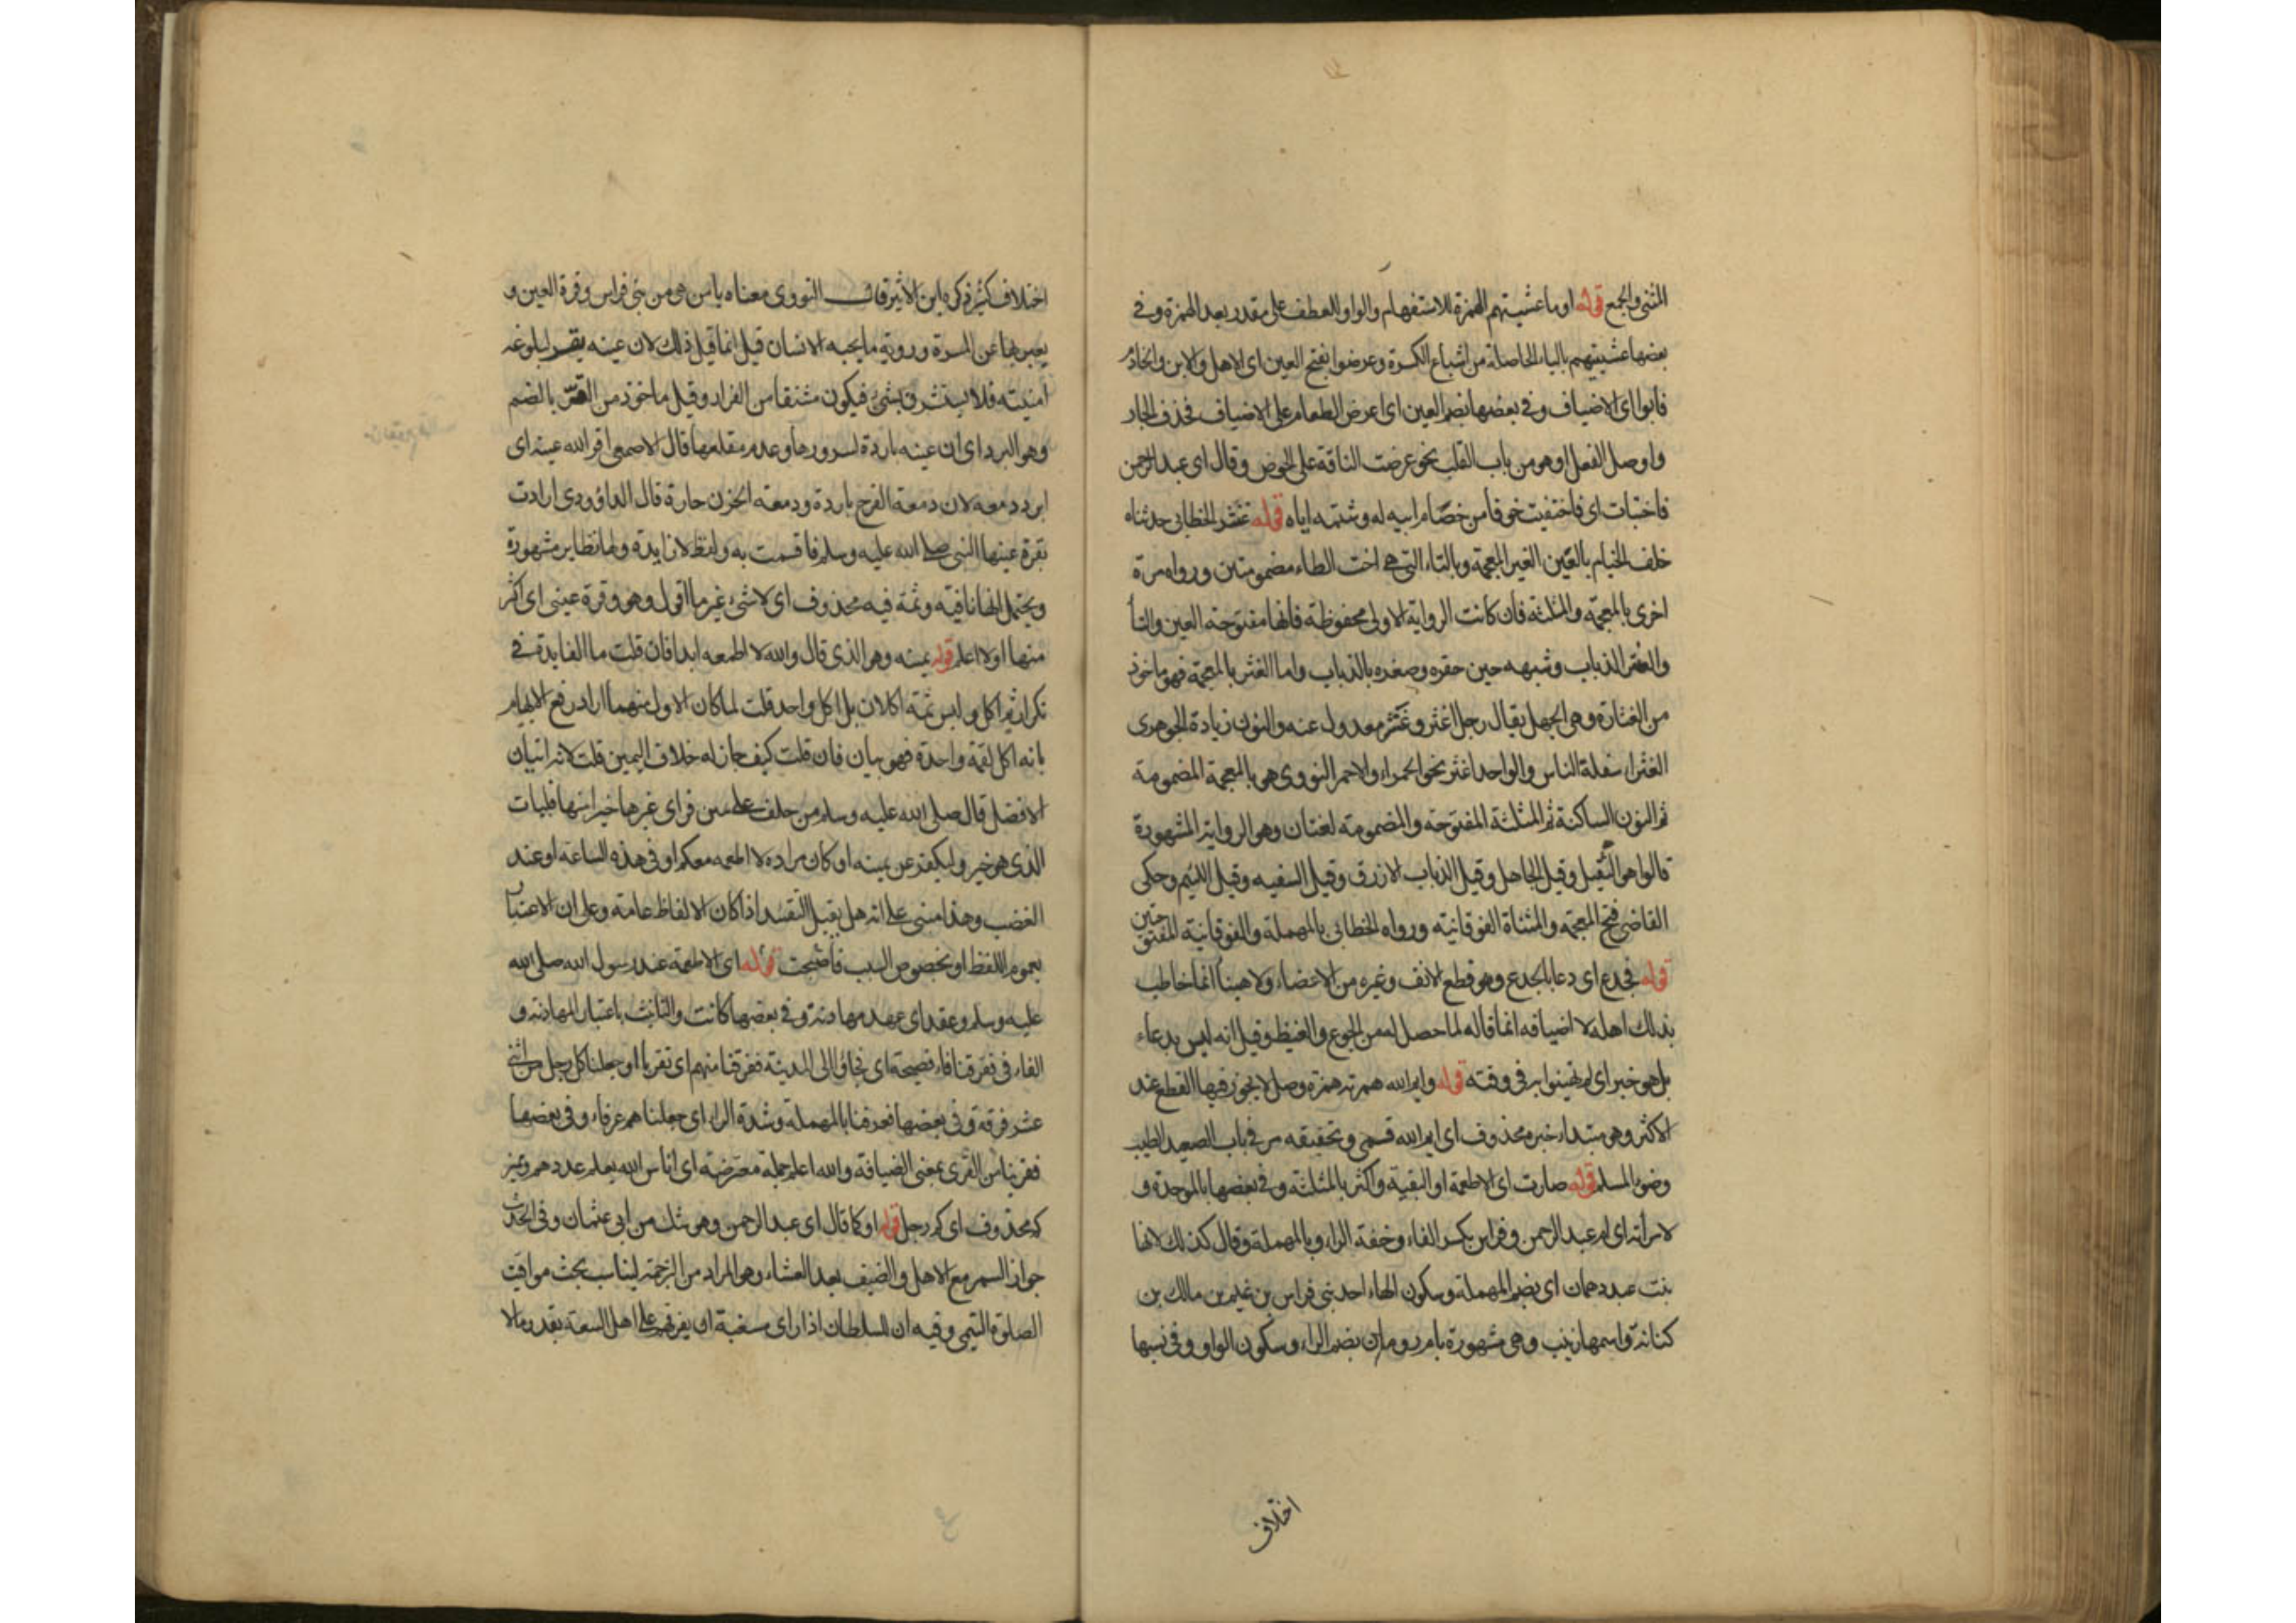 المثنى والجمع قوله او ما عشيتهم الهمزة للاستفهام والواو للعطف على مقدر بعد الهمزة وفي
بعضها عشيتيهم بالياء الحاصلة من اشباع الكسرة وعرضوا بفتح العين اى الاهل والابن والخادم
فابوا اى الاضياف وفي بعضها بضم العين اى اعرض الطعام على الاضياف فحذف الجار
واوصل الفعل او هو من باب القلب نحو عرضت الناقة على الحوض وقال اى عبد الرحمن
فاختبات اى فاختفيت خوفا من خصام ابيه له وشتمه اياه قوله غنثر الخطابى حدثناه
خلف الخيام بالغين الغير المعجمة وبالتاء التي هي اخت الطاء مضمومتين ورواه مرة
اخرى بالمعجمة والمثلثة فان كانت الرواية الاولى محفوظة فانها مفتوحة العين والتا
والعنتر الذباب وشبهه حين حقره وصغره بالذباب واما الغنثر بالمعجمة فهو ماخوذ
من الغثارة وهي الجهل يقال رجل اغثر وغنثر معدول عنه والنون زيادة الجوهرى
الغثراء سفلة الناس والواحد اغثر نحو الحمراء والاحمر النووى هى بالمعجمة المضمومة
ثم النون الساكنة ثم المثلثة المفتوحة والمضمومة لغتان وهو الرواية المشهورة
قالوا هو الثقيل وقيل الجاهل وقيل الذباب الازرق وقيل السفيه وقيل اللئيم وحكى
القاضى فتح المعجمة والمثناة الفوقانية ورواه الخطابى بالمهملة والفوقانية المفتوحتين
قوله فجدع اى دعا بالجدع وهو قطع الانف وغيره من الاعضاء ولا هنيئا انما خاطب
بذلك اهله لا اضيافه انما قاله لما حصل له من الجوع والغيظ وقيل انه ليس بدعاء
بل هو خبر اى لم تهنئوا به في وقته قوله وايم الله همزته همزة وصل لا يجوز فيها القطع عند
الاكثر وهو مبتداء خبره محذوف اى ايم الله قسمى وتحقيقه مر في باب الصعيد الطيب
وضوء المسلم قوله صارت اى الاطعمة او البقية واكثر بالمثلثة وفي بعضها بالموحدة و
لامراته اى ام عبد الرحمن وفراس بكسر الفاء وخفة الراء وبالمهملة وقال كذلك لانها
بنت عبد دهمان اى بضم المهملة وسكون الهاء احد بنى فراس بن غنم بن مالك بن
كنانة واسمها زينب وهى مشهورة بام رومان بضم الراء وسكون الواو وفي نسبها
اختلاف
اختلاف كثير ذكره ابن الاثير قال النووى معناه يا من هو من بنى فراس وقرة العين و
يعبر بها عن المسرة ورؤية ما يحبه الانسان قيل انما قيل ذلك لان عينه يقر لبلوغه
امنيته فلا يستشرف بشئ فيكون مشتقا من القرار وقيل ماخوذ من القر بالضم
وهو البرد اى ان عينه باردة لسرورها وعدم مقلقها قال الاصمعى اقر الله عينه اى
ابرد دمعه لان دمعة الفرح باردة ودمعة الحزن حارة قال الداؤودى ارادت
بقرة عينها النبى صلى الله عليه وسلم فاقسمت به ولفظ لا زايدة ولها نظاير مشهورة
ويحتمل انها نافية وثمة فيه محذوف اى لا شئ غير ما اقول وهو وقرة عينى اى اكثر
منها او لا اعلم قوله يمينه وهو الذى قال والله لا اطعمه ابدا فان قلت ما الفايدة في
تكرار ثم اكل وليس ثمة اكلان بل اكل واحد قلت لما كان الاول مبهما اراد رفع الابهام
بانه اكل لقمة واحدة فهو بيان فان قلت كيف جاز له خلاف اليمين قلت لانه اتيان
الافضل قال صلى الله عليه وسلم من حلف على يمين فراى غيرها خيرا منها فليات
الذى هو خير وليكفر عن يمينه او كان مراده لا اطعمه معكم او في هذه الساعة او عند
الغضب وهذا مبنى على انه هل يقبل التقييد اذا كان الالفاظ عامة وعلى ان الاعتبار
بعموم اللفظ او بخصوص السبب فاصبحت قوله اى الاطعمة عند رسول الله صلى الله
عليه وسلم وعقد اى عهد مهادنة وفي بعضها كانت والتانيث باعتبار المهادنة و
الفاء في ففرقنا فاء فصيحة اى فجاؤا الى المدينة ففرقنا منهم اى تفريقا او جعلنا كل رجل من اثنى
عشر فرقة وفي بعضها فعرفنا بالمهملة وشدة الراء اى جعلناهم عرفاء وفي بعضها
فقرينا من القرى بمعنى الضيافة والله اعلم جملة معترضة اى اناس الله يعلم عددهم ومميز
كم محذوف اى كم رجل قوله او كما قال اى عبد الرحمن وهو شك من ابى عثمان وفي الحديث
جواز السمر مع الاهل والضيف بعد العشاء وهو المراد من الترجمة ليناسب بحث مواقيت
الصلوة التيمى وفيه ان للسلطان اذا راى مسغبة ان يفرقهم على اهل السعة بقدر ما لا